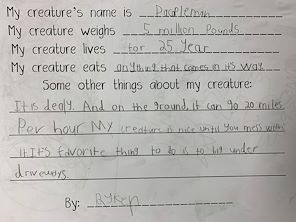 My creature's name is Purpleman
My creature weighs 5 million Pounds
My creature lives for 25 year
My creature eats anything that comes in its way
Some other things about my creature:
It is deqly. And on the ground, it can go 20 miles
Per hour My creature is nice until you mess with
it It's favorite thing to do is to hid under
drweways.
By: